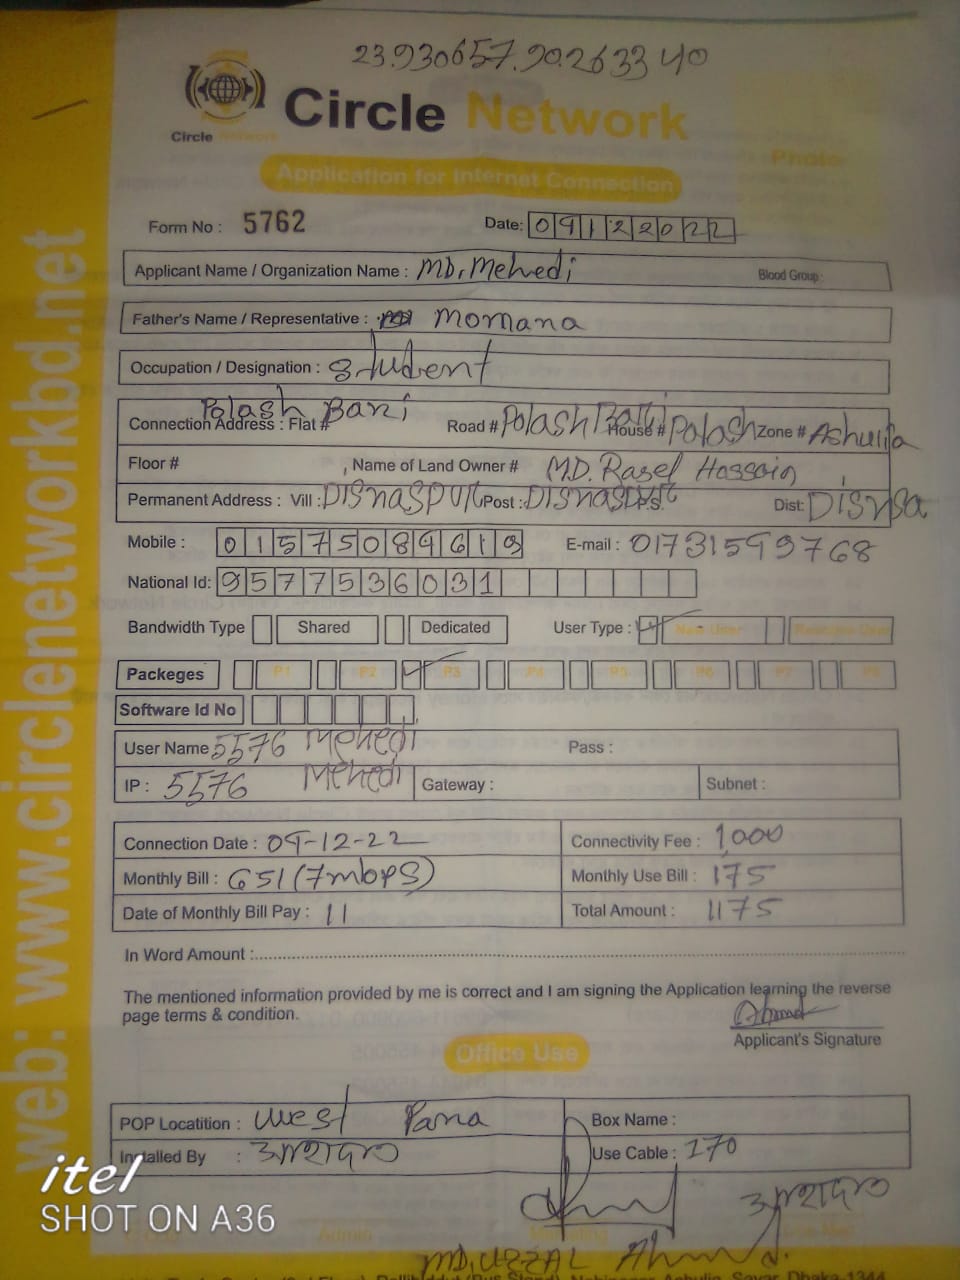 23.930657.90.2633240
Circle Network
Circle Network
Photo
Application for Internet Connection
Form No : 5762 Date: 09122022
Applicant Name / Organization Name : MD. Mehedi Blood Group:
Father's Name / Representative : Momana
Occupation / Designation : Student
Connection Address : Flat # Polash Bari Road # Polash Bari House # Polash Zone # Ashulia
Floor # , Name of Land Owner # M.D. Rasel Hossain
Permanent Address : Vill : Post : P.S. Dist:
Mobile : 01575089619 E-mail : 01731599768
National Id: 9577536031
Bandwidth Type Shared Dedicated User Type : New User
Packeges P1 P2 P3 P4 P5 P6 P7 P8
Software Id No
User Name 5576 Mehedi Pass :
IP : 5576 Mehedi Gateway : Subnet :
Connection Date : 09-12-22 Connectivity Fee : 1,000
Monthly Bill : 651 (7mbps) Monthly Use Bill : 175
Date of Monthly Bill Pay : 11 Total Amount : 1175
In Word Amount :
The mentioned information provided by me is correct and I am signing the Application learning the reverse
page terms & condition.
Applicant's Signature
Office Use
POP Locatition : West Para Box Name :
Installed By : Use Cable : 170
Admin Marketing
MD. UZZAL Ahmed.
web: www.circlenetworkbd.net
itel
SHOT ON A36